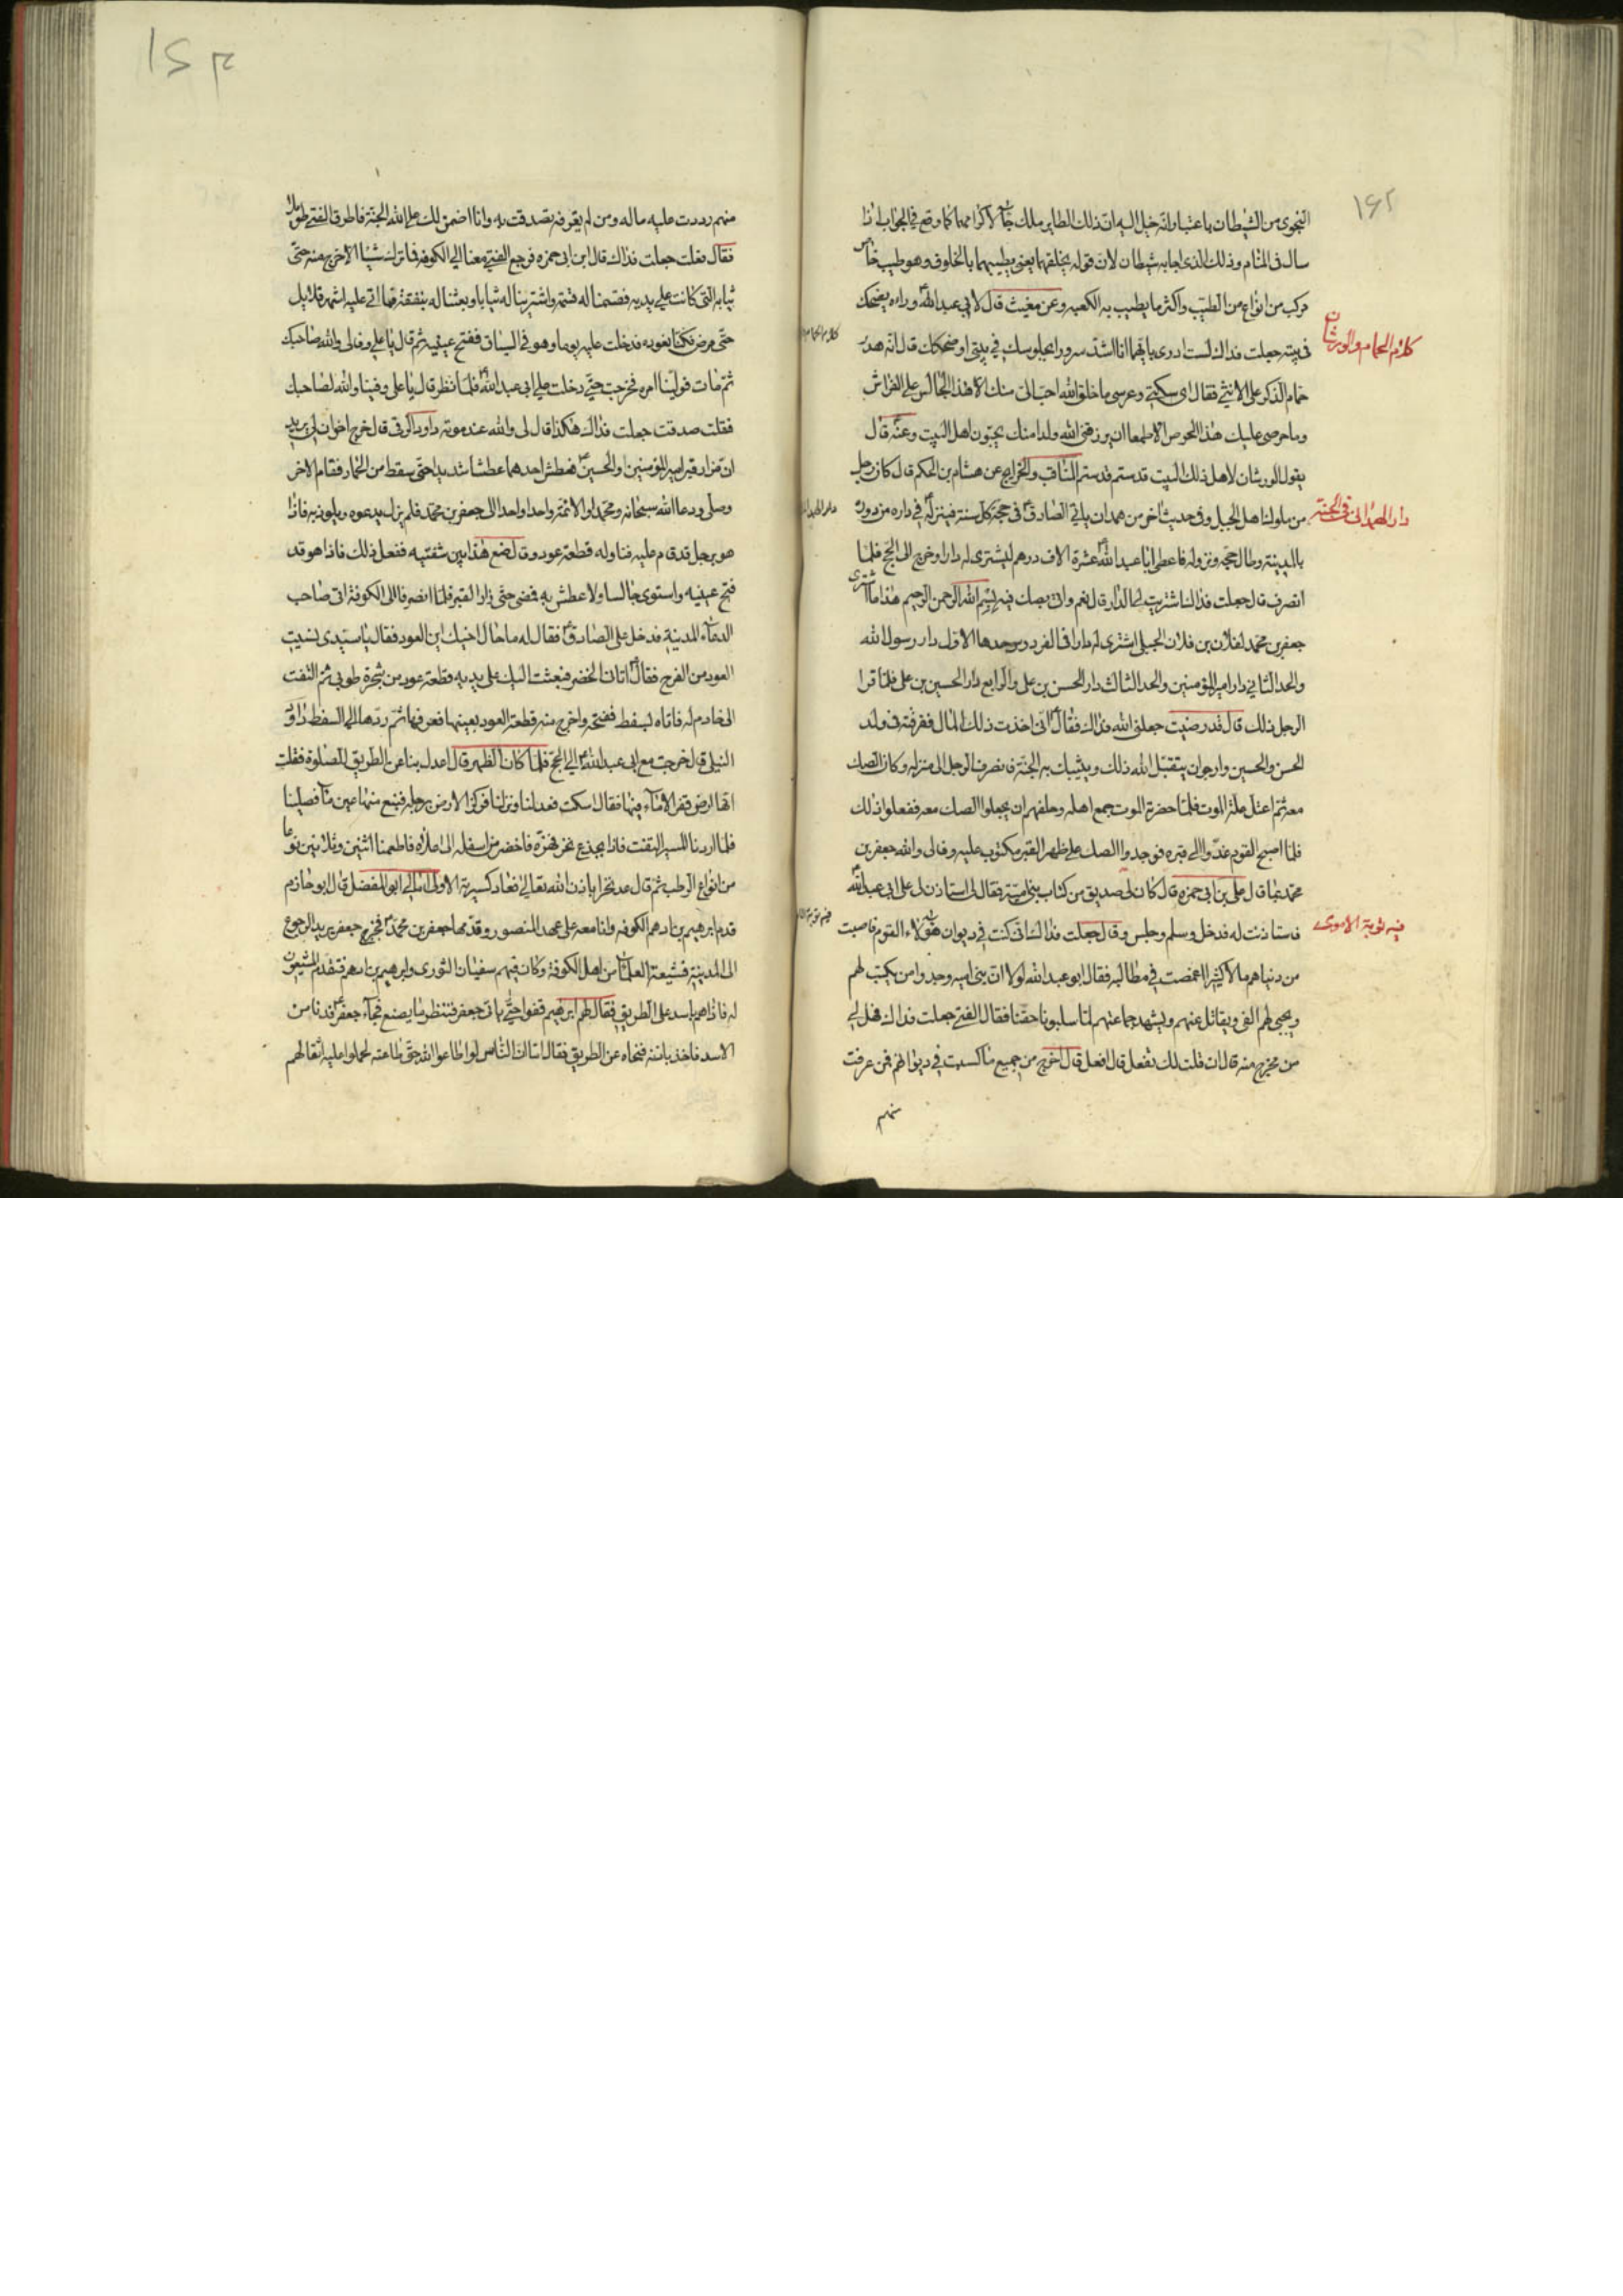 ۱۶۲
النجوى من الشيطان باعتبار انه خيل اليه ان ذلك الطاير ملك جاء لاكرامهما كما وقع في الجواب لذا
سال في المنام وذلك الذي اجابه شيطان لان قوله يخلقهما يعني يطيبهما بالخلوق وهو طيب خاص
مركب من انواع من الطيب واكثر ما يطيب به الكعبه وعن مغيث قال لابي عبد الله وراه يضحك
في بيته جعلت فداك لست ادري بايهما انا اشد سرورا بجلوسك في بيتي او ضحكك قال انه هدر
كلام الحمام والورشان
حمام الذكر على الانثى فقال اي سكني وعرسي ما خلق الله احب الي منك الا هذا الجالس على الفراش
وما حرصي عليك هذا الحرص الا طمعا ان يرزقني الله ولدا منك يحبون اهل البيت وعنه قال
يقول الورشان لاهل ذلك البيت قدستم قدستم المناقب والخرايج عن هشام بن الحكم قال كان رجل
من ملوك اهل الجبل وفي حديث اخر من همدان ياتي الصادق في حجة كل سنة فينزله في داره من دوره
دار الهمداني في الجنة
بالمدينة وطال حجه ونزوله فاعطى ابا عبد الله عشرة الاف درهم ليشتري له دارا وخرج الى الحج فلما
انصرف قال جعلت فداك اشتريت لي الدار قال نعم واتى بصك فيه بسم الله الرحمن الرحيم هذا ما اشترى
جعفر بن محمد لفلان بن فلان الجبلي اشترى له دارا في الفردوس حدها الاول دار رسول الله
والحد الثاني دار امير المؤمنين والحد الثالث دار الحسن بن علي والرابع دار الحسين بن علي فلما قرا
الرجل ذلك قال قد رضيت جعلني الله فداك فقال اني اخذت ذلك المال ففرقته في ولد
الحسن والحسين وارجو ان يتقبل الله ذلك ويثيبك به الجنة فانصرف الرجل الى منزله وكان الصك
معه ثم اعتل علة الموت فلما حضرته الموت جمع اهله وحلفهم ان يجعلوا الصك معه ففعلوا ذلك
فلما اصبح القوم غدوا الى قبره فوجدوا الصك على ظهر القبر مكتوب عليه وفالي والله جعفر بن
محمد بما قال علي بن ابي حمزه قال كان لي صديق من كتاب بني امية فقال لي استاذن لي على ابي عبد الله
فاستاذنت له فدخل وسلم وجلس وقال جعلت فداك اني كنت في ديوان هؤلاء القوم فاصبت
فيه توبة الاموي
من دنياهم مالا كثيرا اغمضت في مطالبه فقال ابو عبد الله لولا ان بني اميه وجدوا من يكتب لهم
ويجبي لهم الفي ويقاتل عنهم ويشهد جماعتهم لما سلبونا حقنا فقال الفتى جعلت فداك فهل لي
من مخرج منه قال ان قلت لك تفعل قال افعل قال اخرج من جميع ما كسبت في ديوانهم فمن عرفت
منهم
منهم رددت عليه ماله ومن لم يعرفه تصدقت به وانا اضمن لك على الله الجنة فاطرق الفتى طويلا
فقال فعلت جعلت فداك قال ابن ابي حمزه فرجع الفتى معنا الى الكوفة فما ترك شيئا الا خرج منه حتى
ثيابه التي كانت على بدنه فقسمنا له قسمة واشترينا له ثيابا وبعثنا له بنفقة فما اتى عليه اشهر قلائل
حتى مرض فكنا نعوده فدخلت عليه يوما وهو في السياق ففتح عينيه ثم قال يا علي وفى لي والله صاحبك
كلام الحمام
ثم مات فولينا امره فخرجت حتى دخلت على ابي عبد الله فلما نظر قال يا علي وفينا والله لصاحبك
فقلت صدقت جعلت فداك هكذا قال لي والله عند موته داود الرقي قال خرج اخوان لي يريدان
ان مزار قبر امير المؤمنين والحسين فعطش احدهما عطشا شديدا حتى سقط من الحمار فقام الاخر
وصلى ودعا الله سبحانه ومحمدا والائمة واحدا واحدا الى جعفر بن محمد فلم يزل يدعوه ويلوذ به فاذا
هو برجل قد قام عليه فناوله قطعة عود وقال ضع هذا بين شفتيه ففعل ذلك فاذا هو قد
فتح عينيه واستوى جالسا ولا عطش به فمضى حتى زارا القبر فلما انصرفا الى الكوفة اتى صاحب
الدعاء المدينة فدخل على الصادق فقال له ما حال اخيك اين العود فقال يا سيدي نسيت
العود من الفرح فقال اتاني الخضر فبعثت اليك على يديه قطعة عود من شجرة طوبى ثم التفت
الى خادم له فاتاه بسفط ففتحه واخرج منه قطعة العود بعينها فعرفها ثم ردها الى السفط داود
النيلي قال خرجت مع ابي عبد الله الى الحج فلما كان الظهر قال اعدل بنا عن الطريق للصلوة فقلت
انها ارض قفر لا ماء فيها فقال اسكت فعدلنا ونزلنا فركز الارض برجله فنبع منها عين ماء فصلينا
فلما اردنا المسير التفت فاذا بجذع نخر فهزه فاخضر من اسفله الى اعلاه فاطعمنا اثنين وثلاثين نوعا
من انواع الرطب ثم قال عد نخرا باذن الله تعالى فعاد كسيرته الاولى امالي ابي المفضل قال ابو حازم
قدم ابرهيم بن ادهم الكوفه وانا معه على عهد المنصور وقدمها جعفر بن محمد فخرج جعفر يريد الرجوع
الى المدينة فشيعه العلماء من اهل الكوفة وكان فيهم سفيان الثوري وابرهيم بن ادهم فتقدم المشيعون
له فاذا هم باسد على الطريق فقال لهم ابرهيم قفوا حتى ياتي جعفر فننظر ما يصنع فجاء جعفر فدنا من
الاسد فاخذ باذنه فنحاه عن الطريق فقال اما ان الناس لو اطاعوا الله حق طاعته لحملوا عليه اثقالهم